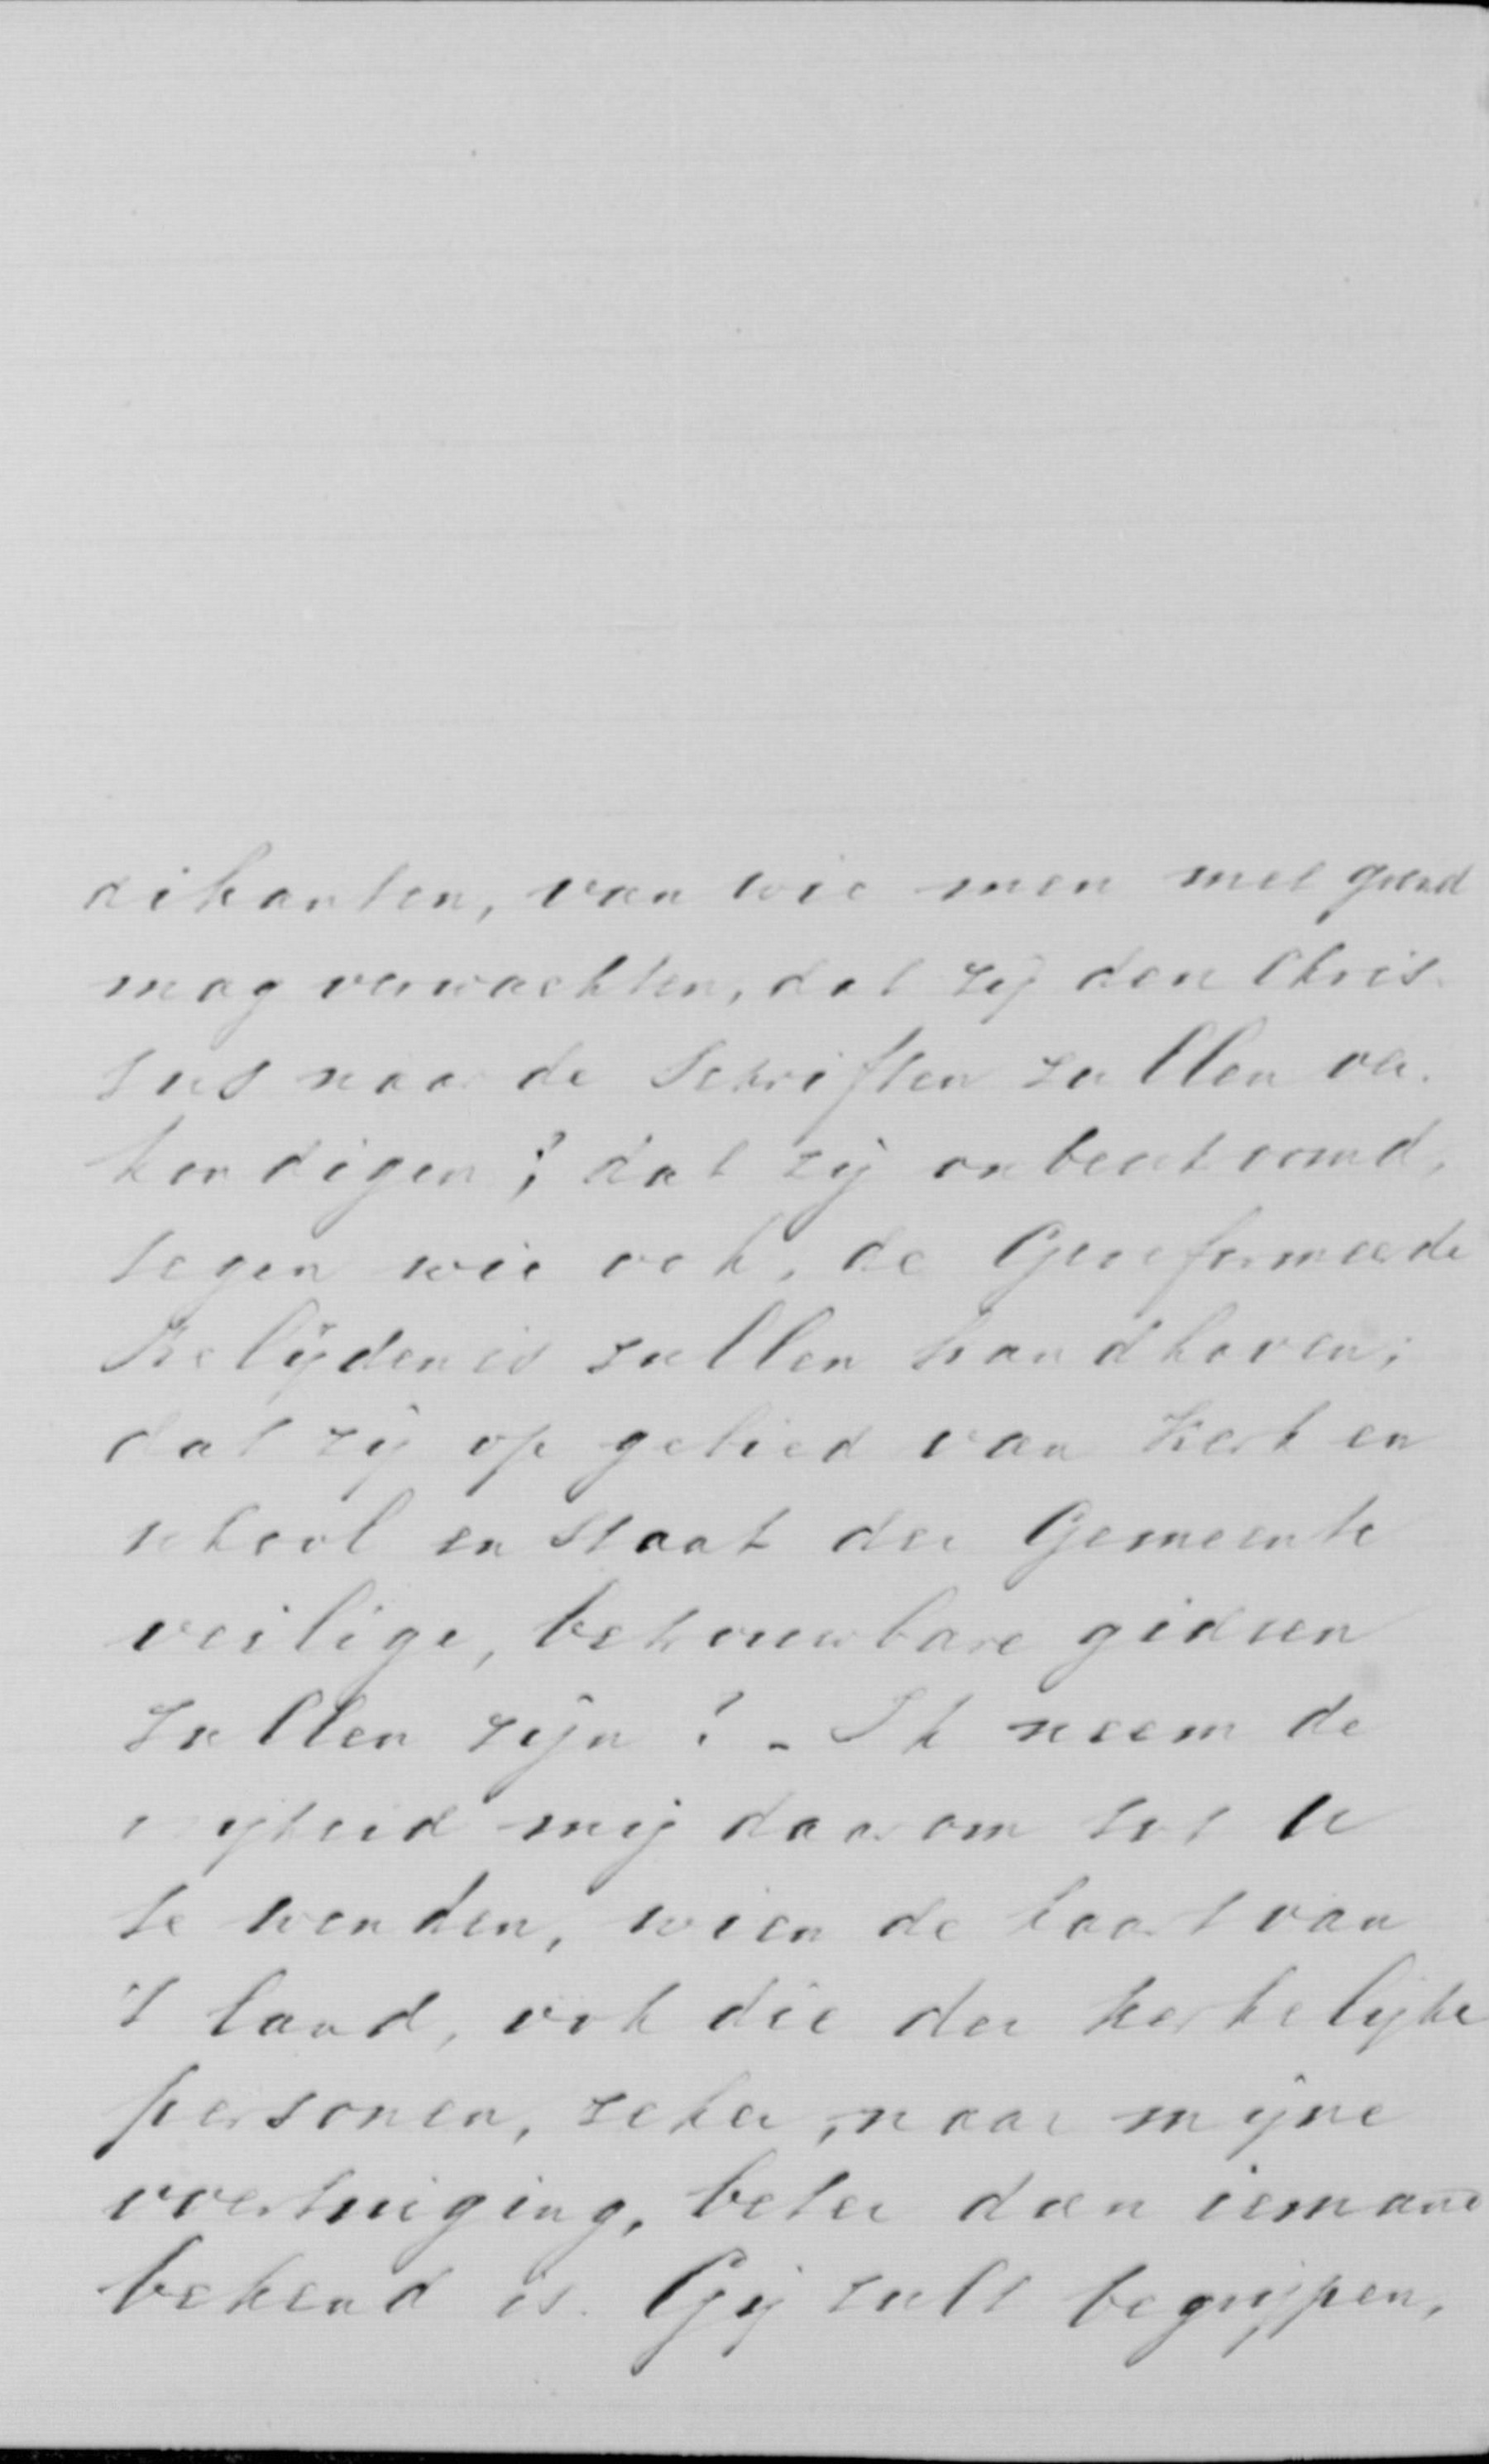 dikanten, van wie men met grond
mag verwachten, dat zij den Chris-
tus naar de Schriften zullen ver-
kondigen; dat zij onbeschroomd,
tegen wie ook, de Gereformeerde
Belijdenis zullen handhaven;
dat zij op gebied van Kerk en
school en Staat der Gemeente
veilige, betrouwbare gidsen
zullen zijn? - Ik neem de
vrijheid mij daarom tot U
te wenden, wien de kaart van
't land, ook die der kerkelijke
personen, zeker, naar mijne
overtuiging, beter dan iemand
bekend is. Gij zult begrijpen,